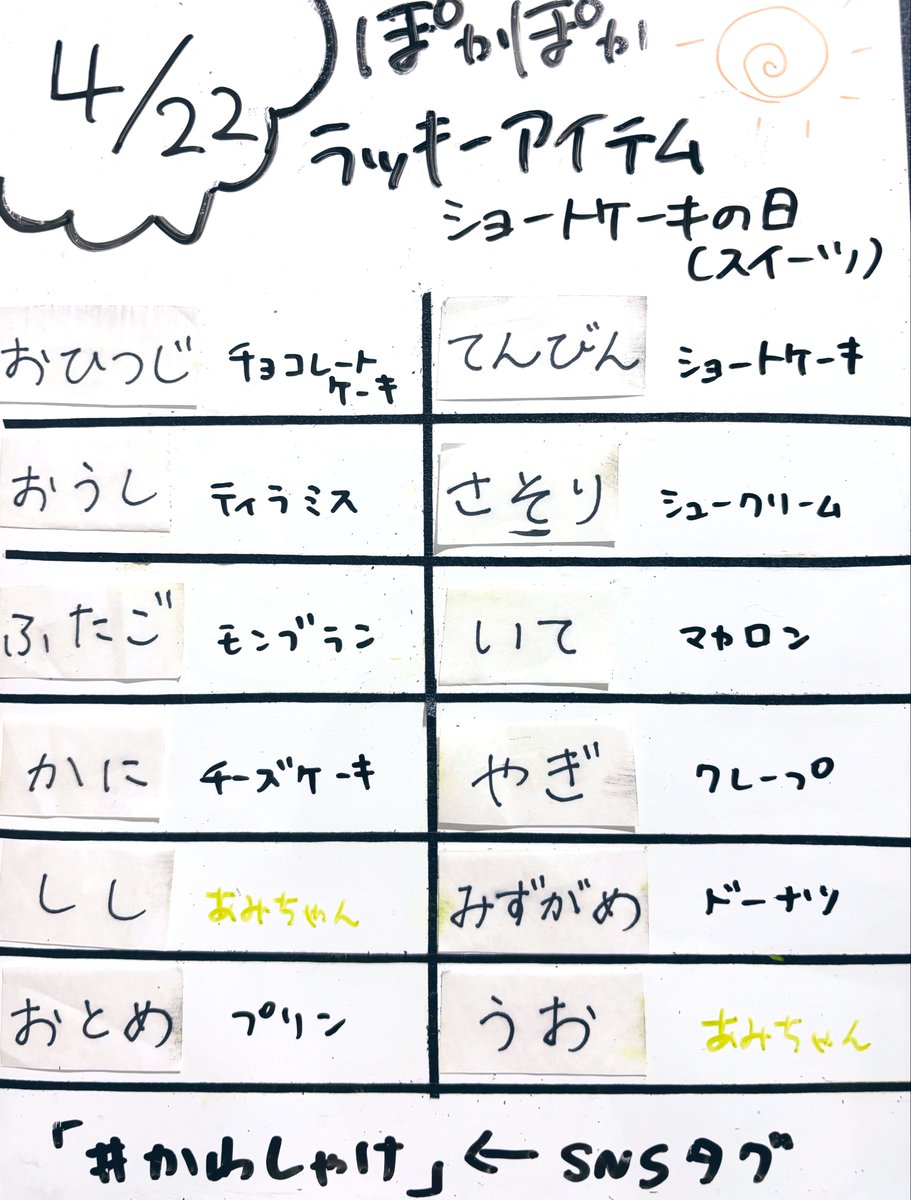 4/22
ぽかぽか
ラッキーアイテム
ショートケーキの日
(スイーツ)
おひつじ チョコレート
ケーキ
てんびん ショートケーキ
おうし ティラミス
さそり シュークリーム
ふたご モンブラン
いて マカロン
かに チーズケーキ
やぎ クレープ
しし あみちゃん
みずがめ ドーナツ
おとめ プリン
うお あみちゃん
「#かめしゃけ」←SNSタグ